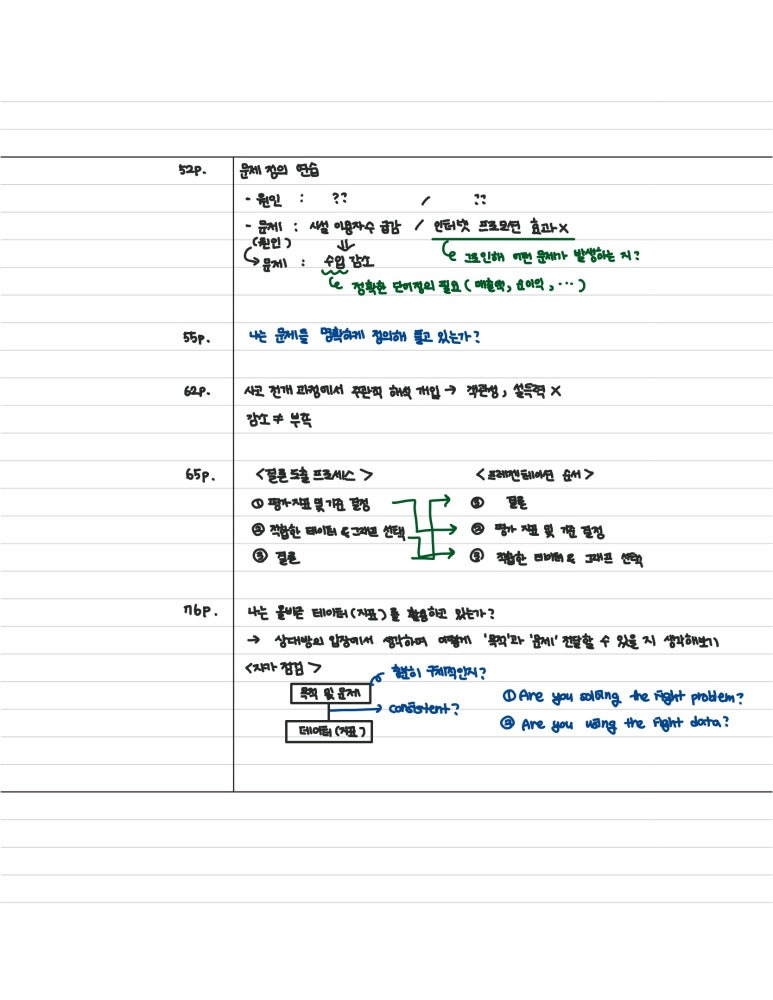 52p. 문제 정의 연습
- 원인 : ?? / ??
- 문제 : 시설 이용자수 급감 / 인터넷 프로모션 효과 X
(원인)
그로인해 어떤 문제가 발생하는 지?
문제 : 수입 감소
정확한 단어정의 필요 (매출액, 순이익, ...)
55p. 나는 문제를 명확하게 정의해 풀고 있는가?
62p. 사고 전개 과정에서 주관적 해석 개입 → 객관성, 설득력 X
감소 ≠ 부족
65p. <결론 도출 프로세스> <프레젠테이션 순서>
① 평가 지표 및 기준 결정 ① 결론
② 적합한 데이터 & 그래프 선택 ② 평가 지표 및 기준 결정
③ 결론 ③ 적합한 데이터 & 그래프 선택
76p. 나는 올바른 데이터(지표)를 활용하고 있는가?
→ 상대방의 입장에서 생각하며 어떻게 '목적'과 '문제' 전달할 수 있을 지 생각해보기
<자가 점검> 충분히 구체적인지?
목적 및 문제 ① Are you solving the right problem?
consistent?
데이터(지표) ② Are you using the right data?